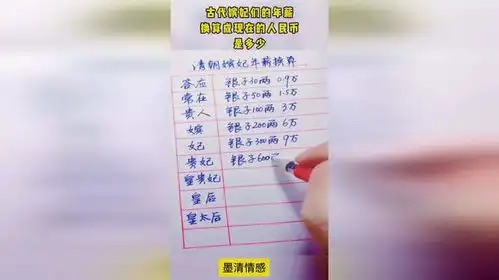 古代嫔妃们的年薪
换算成现在的人民币
是多少
清朝嫔妃年薪换算
答应 银子30两 0.9万
常在 银子50两 1.5万
贵人 银子100两 3万
嫔 银子200两 6万
妃 银子300两 9万
贵妃 银子600
皇贵妃
皇后
皇太后
墨清情感